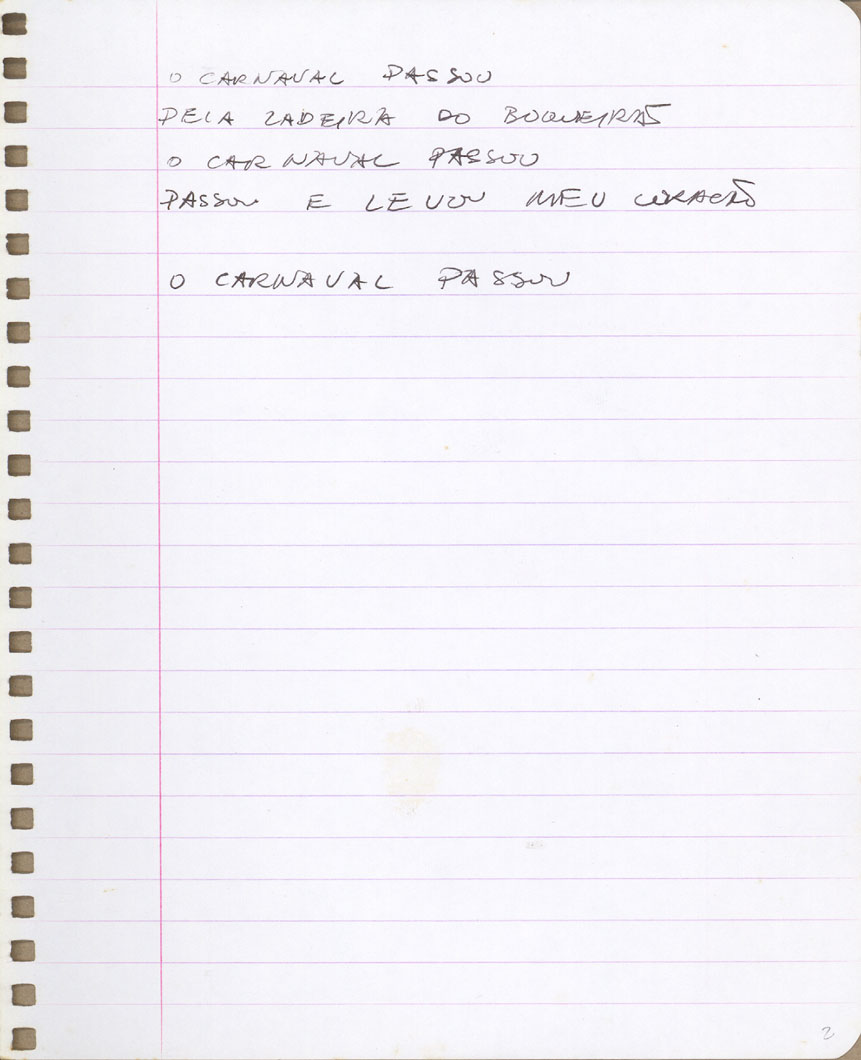 O CARNAVAL PASSOU
PELA LADEIRA DO BOQUEIRÃO
O CARNAVAL PASSOU
PASSOU E LEVOU MEU CORAÇÃO
O CARNAVAL PASSOU
2